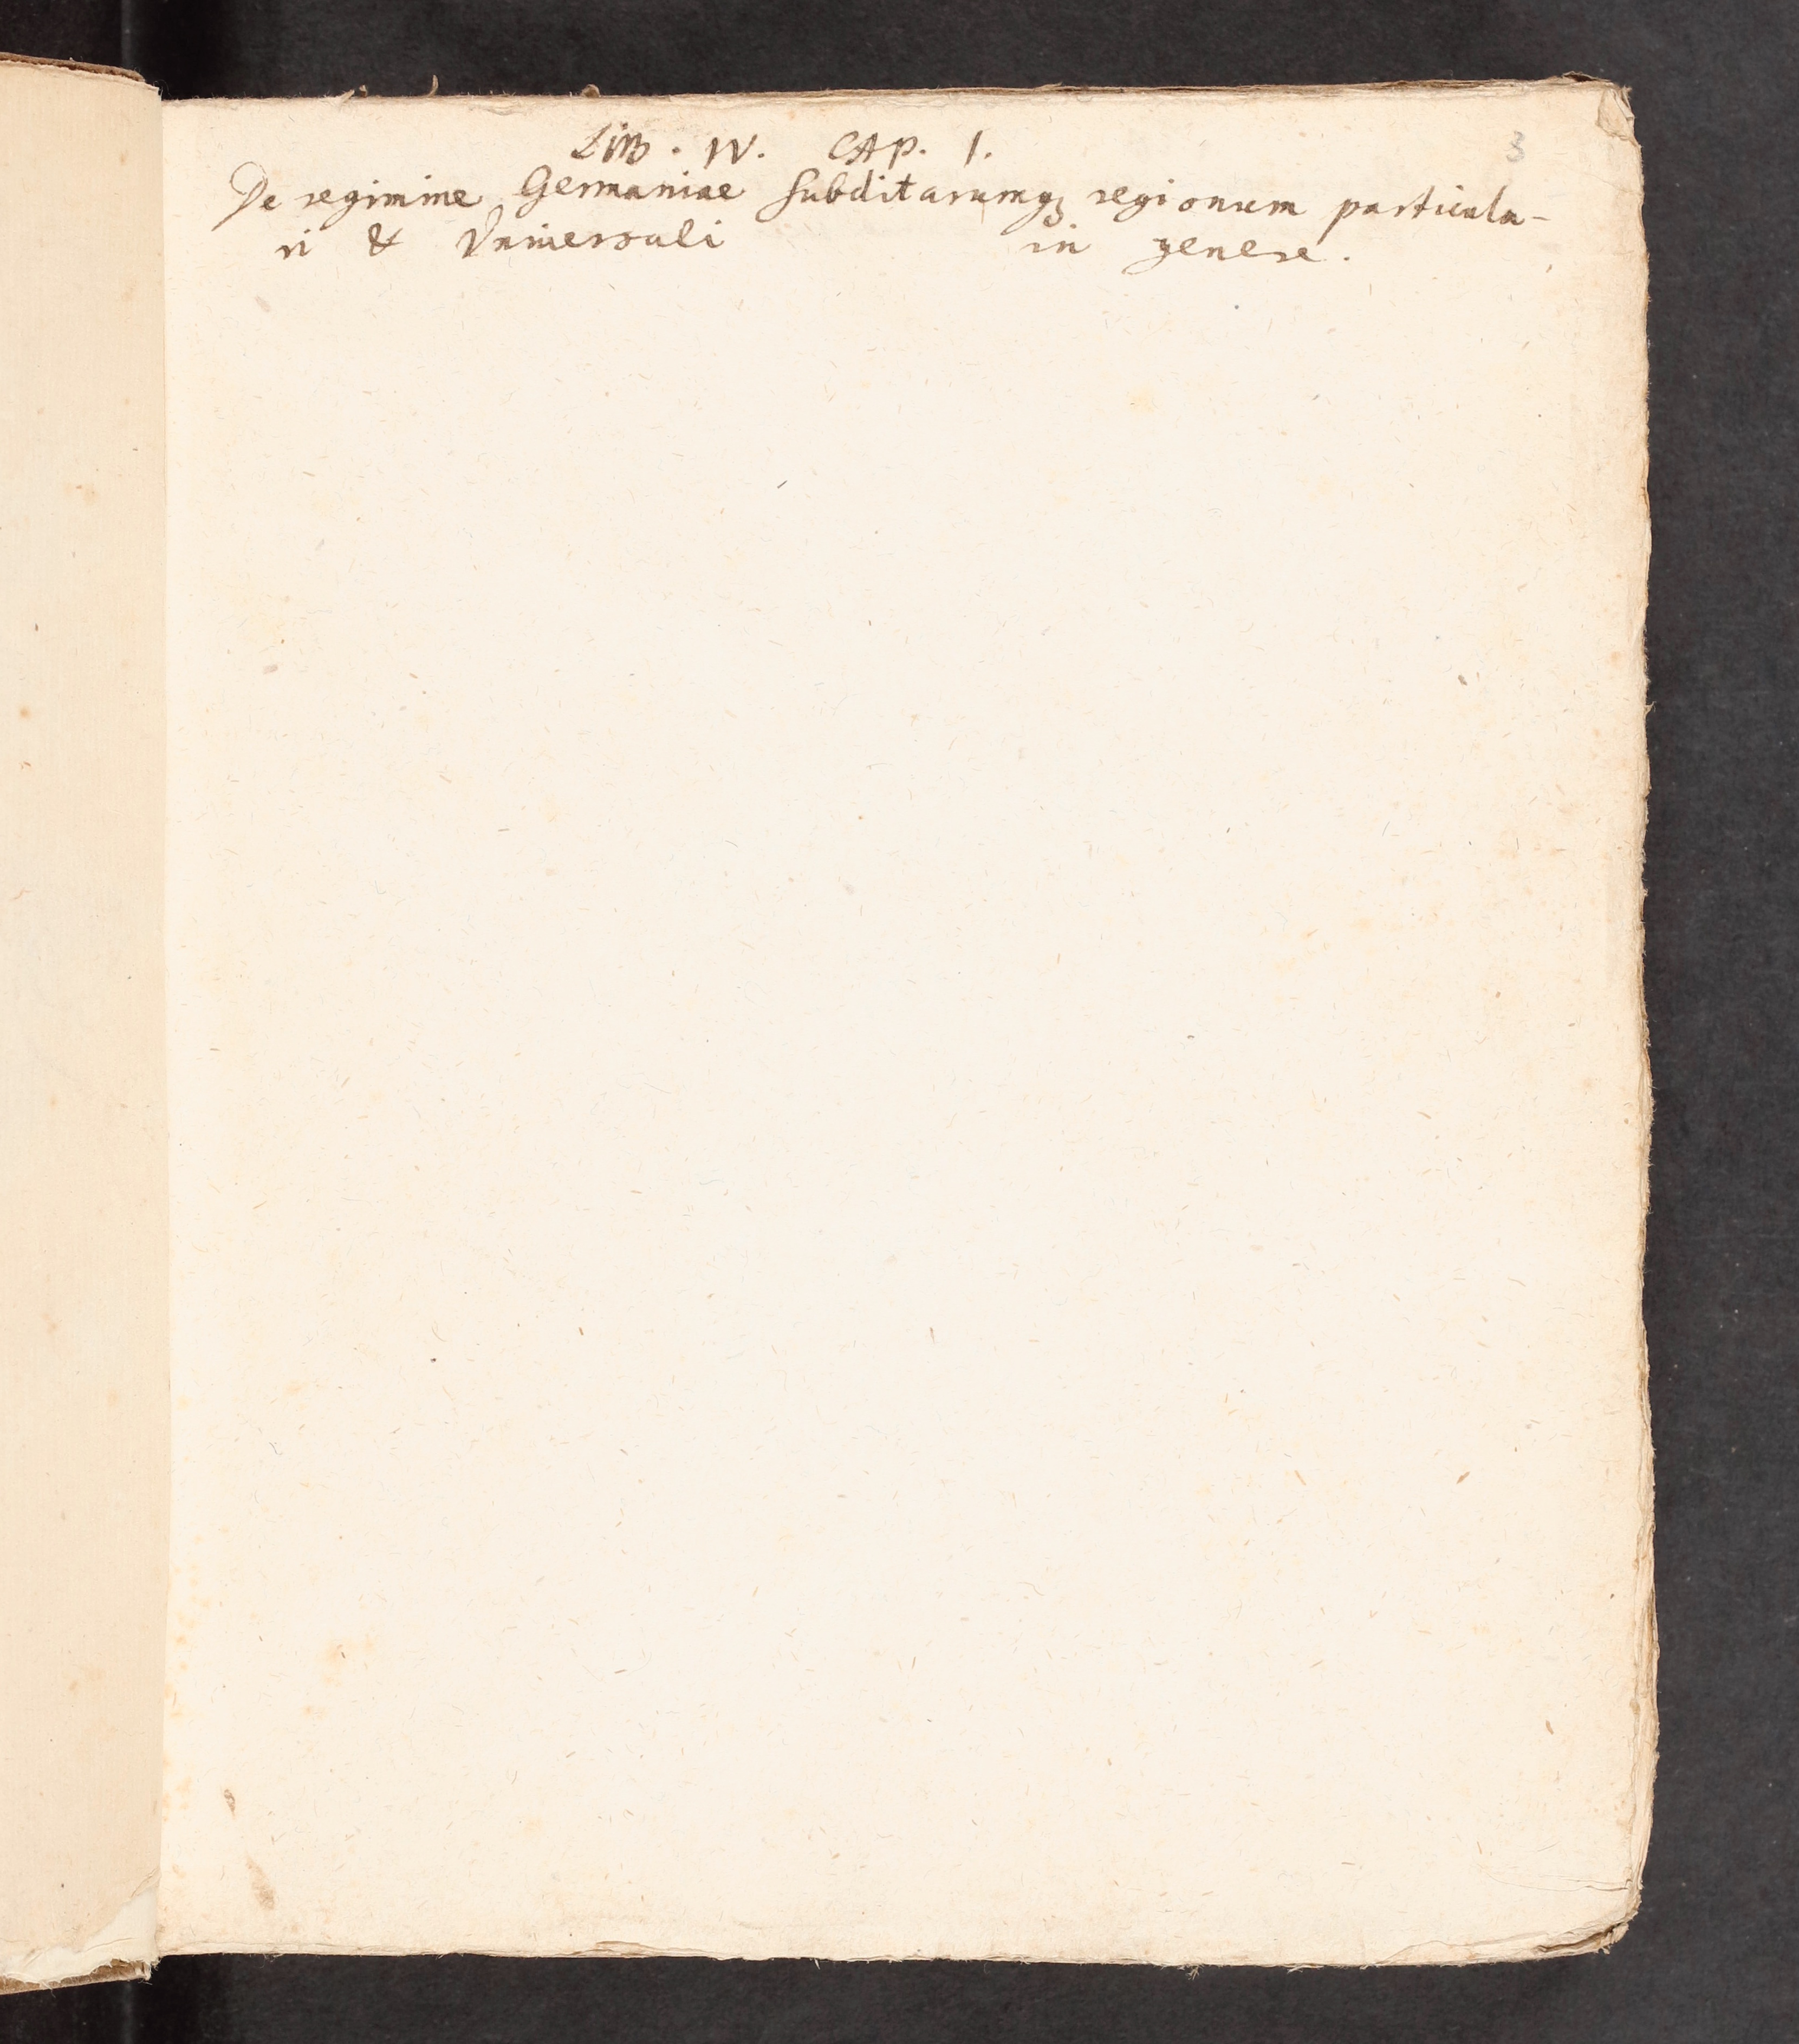 3
LIB. IV. CAP. I.
De regimine Germaniae subditarumqꝫ regionum particula-
ri & Vniersali in genere.